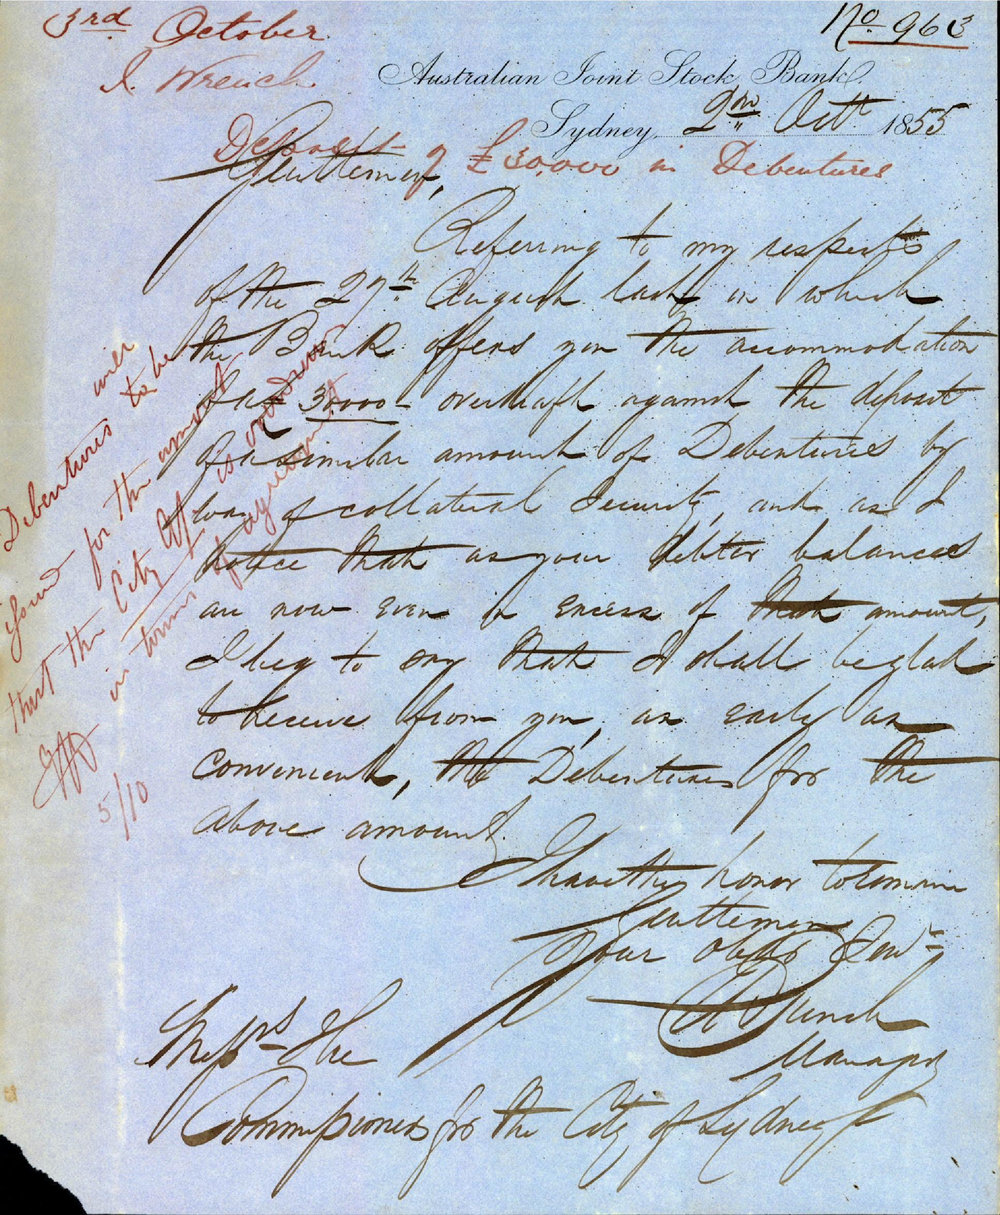 3rd October
No 963
J. Wrench
Australian Joint Stock Bank,
Sydney, 2nd Octr 1855
Deposit of £30,000 in Debentures
Gentlemen,
Referring to my respects
of the 27th August last in which
the Bank offers you the accommodation
of a £30,000 overdraft against the deposit
of a similar amount of Debentures by
way of collateral security, and as I
notice that as your debtor balances
are now even in excess of that amount,
I beg to say that I shall be glad
to receive from you, as early as
convenient, the Debentures for the
above amount.
I have the honor to remain
Gentlemen
Your obedt Servt
Wrench
Manager
Messrs The
Commissioners for the City of Sydney
Debentures to be
issued for the amount
that the City Act is
in terms of agreement
5/10